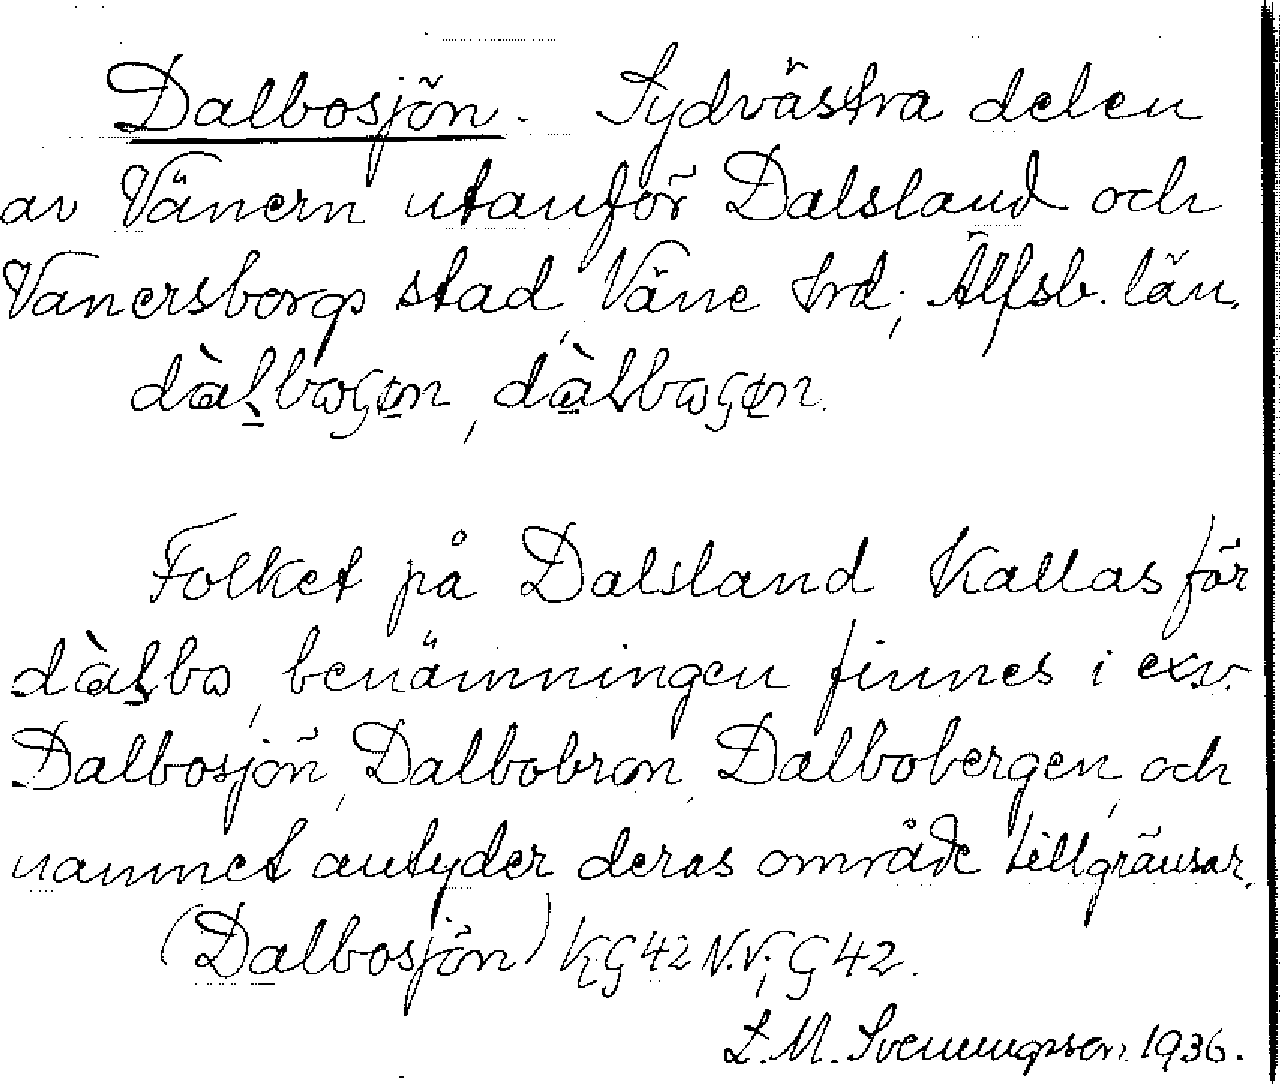 Dalbosjön. Sydvästra delen
av Vänern utanför Dalsland och
Vänersborgs stad, Väne hrd, Älfsb. län.
Folket på Dalsland kallas för
benämningen finnes i exv.
Dalbosjön, Dalbobron, Dalbobergen, och
namnet antyder deras område tillgränsar.
(Dalbosjön) KG42 N.V; G42.
L.M. Svenungsson 1936.